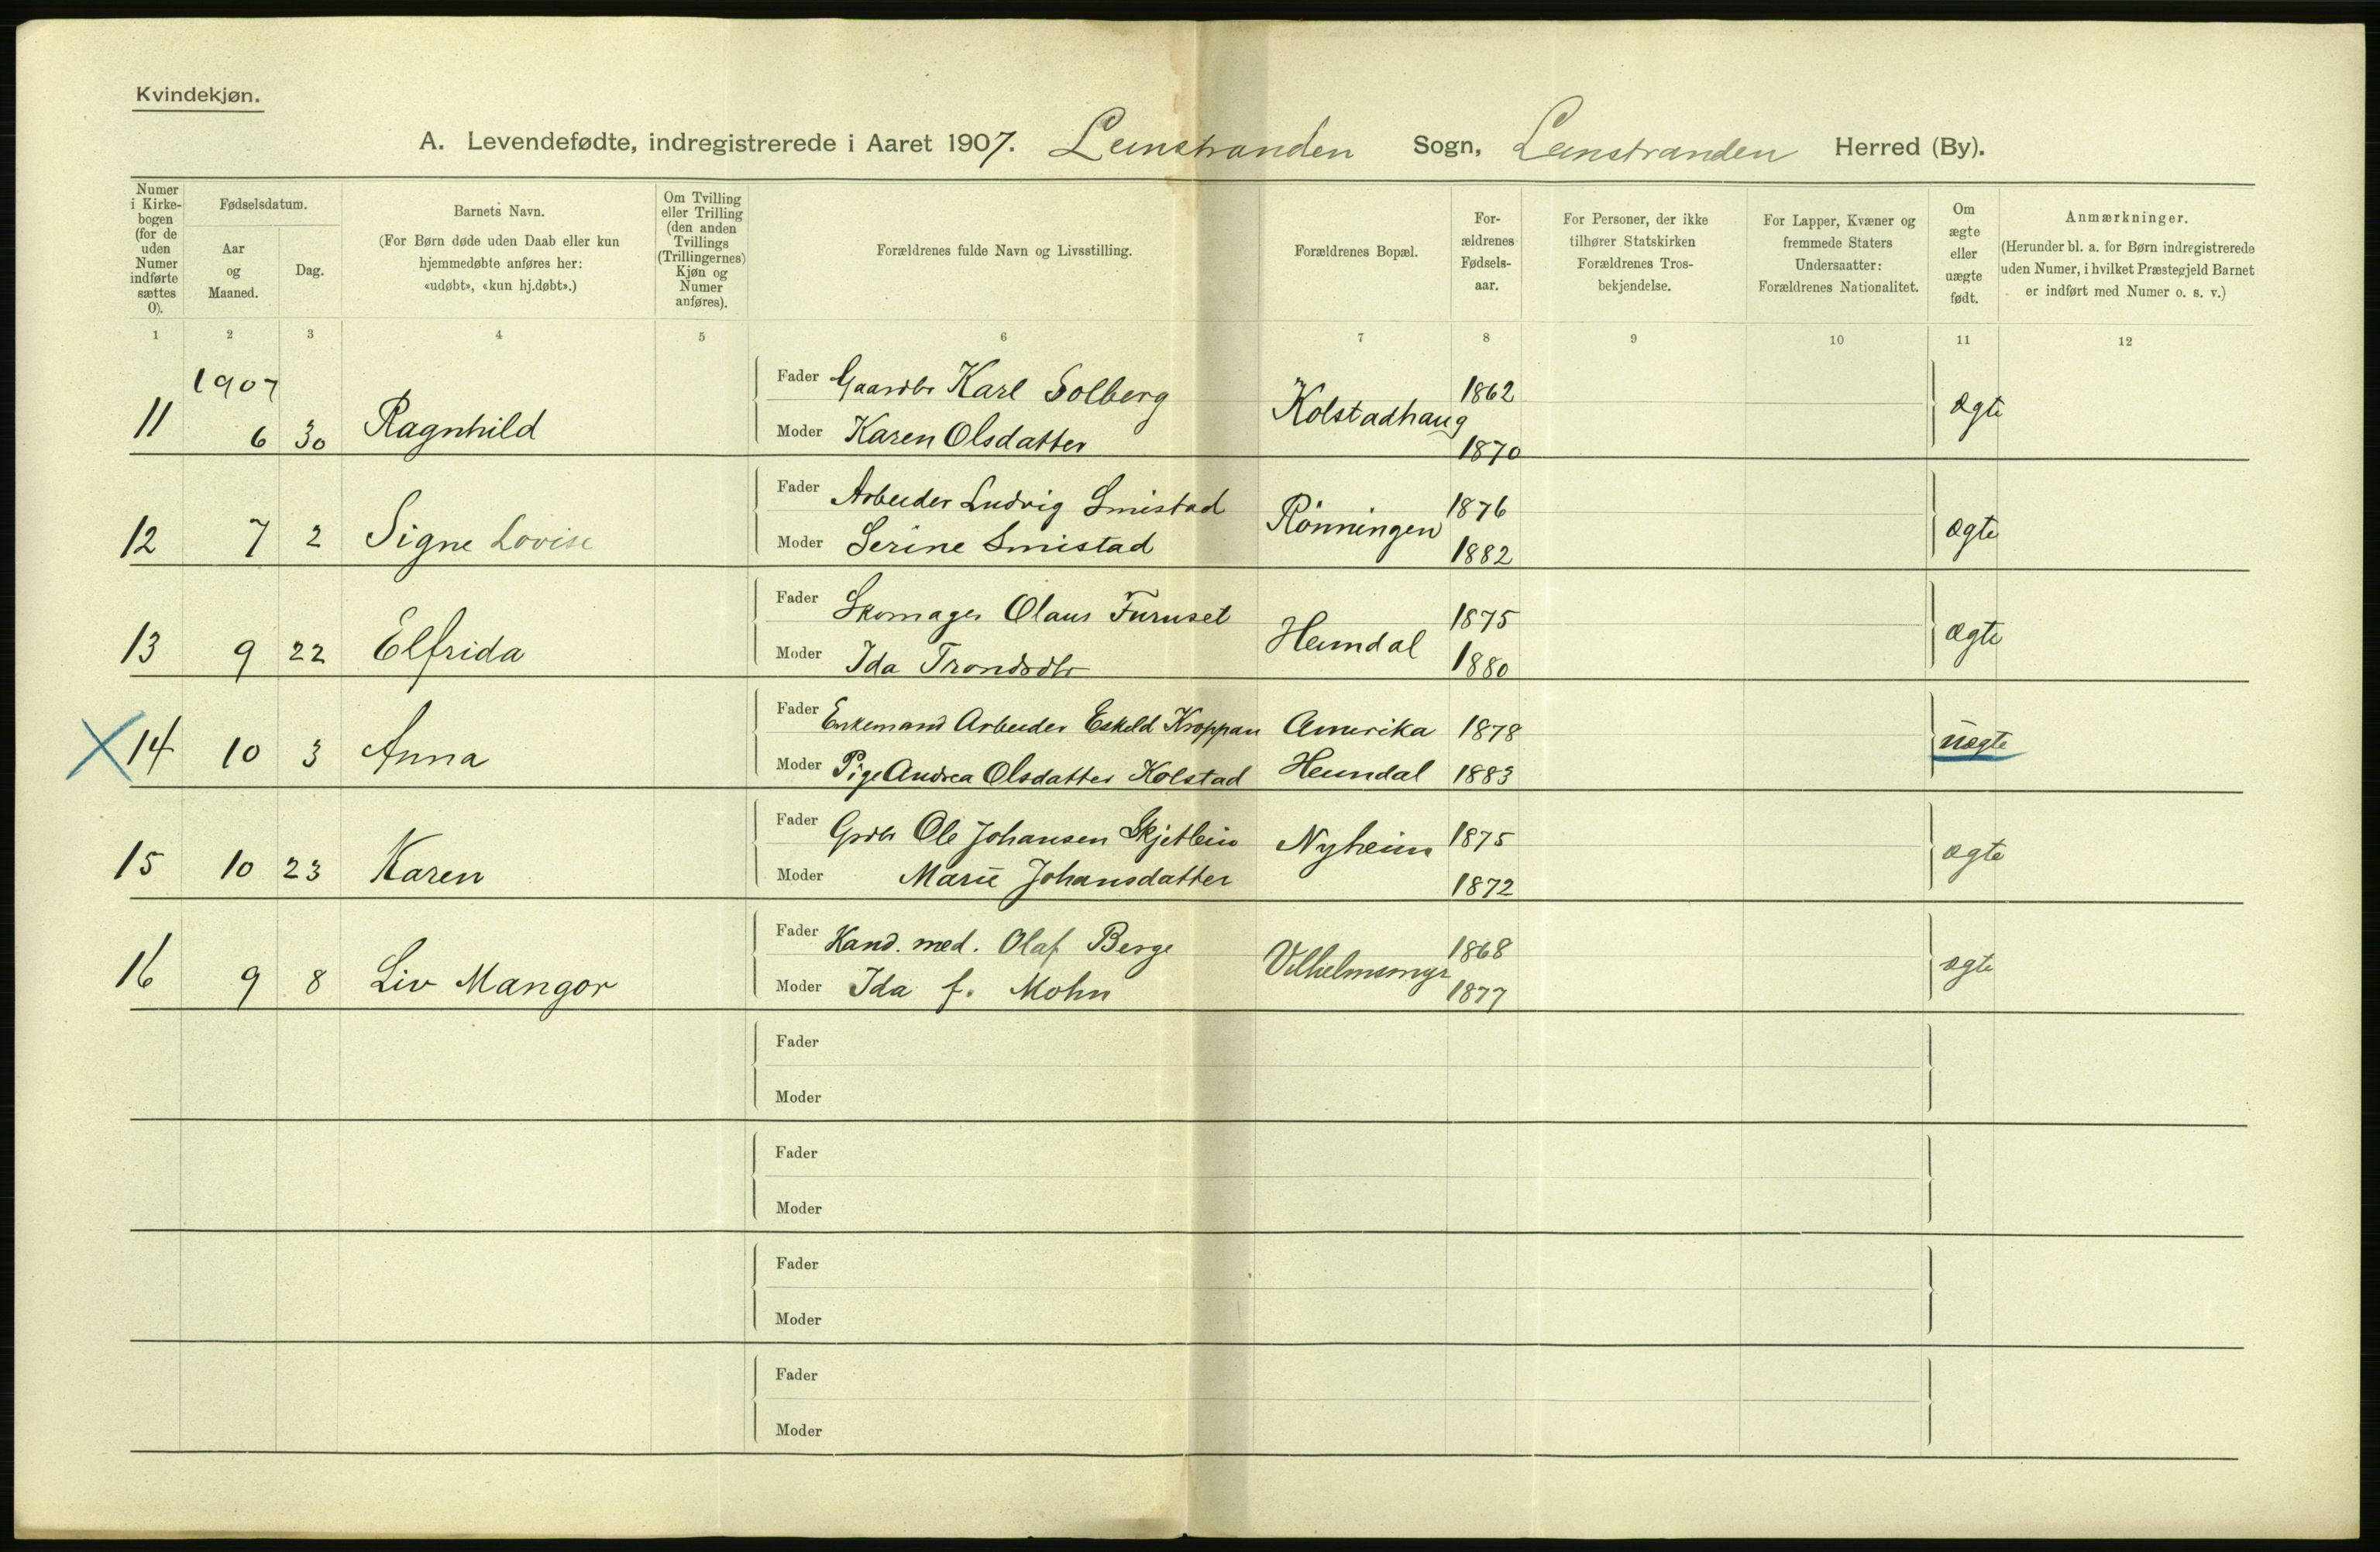 Kvindekjøn.
A. Levendefødte, indregistrerede i Aaret 1907. Leinstranden Sogn, Leinstranden Herred (By).
Numer i Kirkebogen (for de uden Numer indførte sættes 0).
Fødselsdatum.
Aar og Maaned.
Dag.
Barnets Navn.
(For Børn døde uden Daab eller kun hjemmedøbte anføres her: «udøbt», «kun hj.døbt».)
Om Tvilling eller Trilling (den anden Tvillings (Trillingernes) Kjøn og Numer anføres).
Forældrenes fulde Navn og Livsstilling.
Forældrenes Bopæl.
Forældrenes Fødselsaar.
For Personer, der ikke tilhører Statskirken Forældrenes Trosbekjendelse.
For Lapper, Kvæner og fremmede Staters Undersaatter: Forældrenes Nationalitet.
Om ægte eller uægte født.
Anmærkninger.
(Herunder bl. a. for Børn indregistrerede uden Numer, i hvilket Præstegjeld Barnet er indført med Numer o. s. v.)
1 2 3 4 5 6 7 8 9 10 11 12
1907
Fader Gaardbr Karl Solberg 1862
11 6 30 Ragnhild Kolstadhaug ægte
Moder Karen Olsdatter 1870
Fader Arbeider Ludvig Smistad 1876
12 7 2 Signe Lovise Rönningen ægte
Moder Serine Smistad 1882
Fader Skomager Olaus Furuset 1875
13 9 22 Elfrida Heimdal ægte
Moder Ida Trondsdtr 1880
Fader Enkemand Arbeider Eskeld Kroppan Amerika 1878
X 14 10 3 Anna uægte
Moder Pige Andrea Olsdatter Kolstad Heimdal 1883
Fader Grdbr Ole Johansen Skjetlein 1875
15 10 23 Karen Nyheim ægte
Moder Marie Johansdatter 1872
Fader Kand. med. Olaf Berge 1868
16 9 8 Liv Mangor Vilhelmsmyr ægte
Moder Ida f. Mohn 1877
Fader
Moder
Fader
Moder
Fader
Moder
Fader
Moder